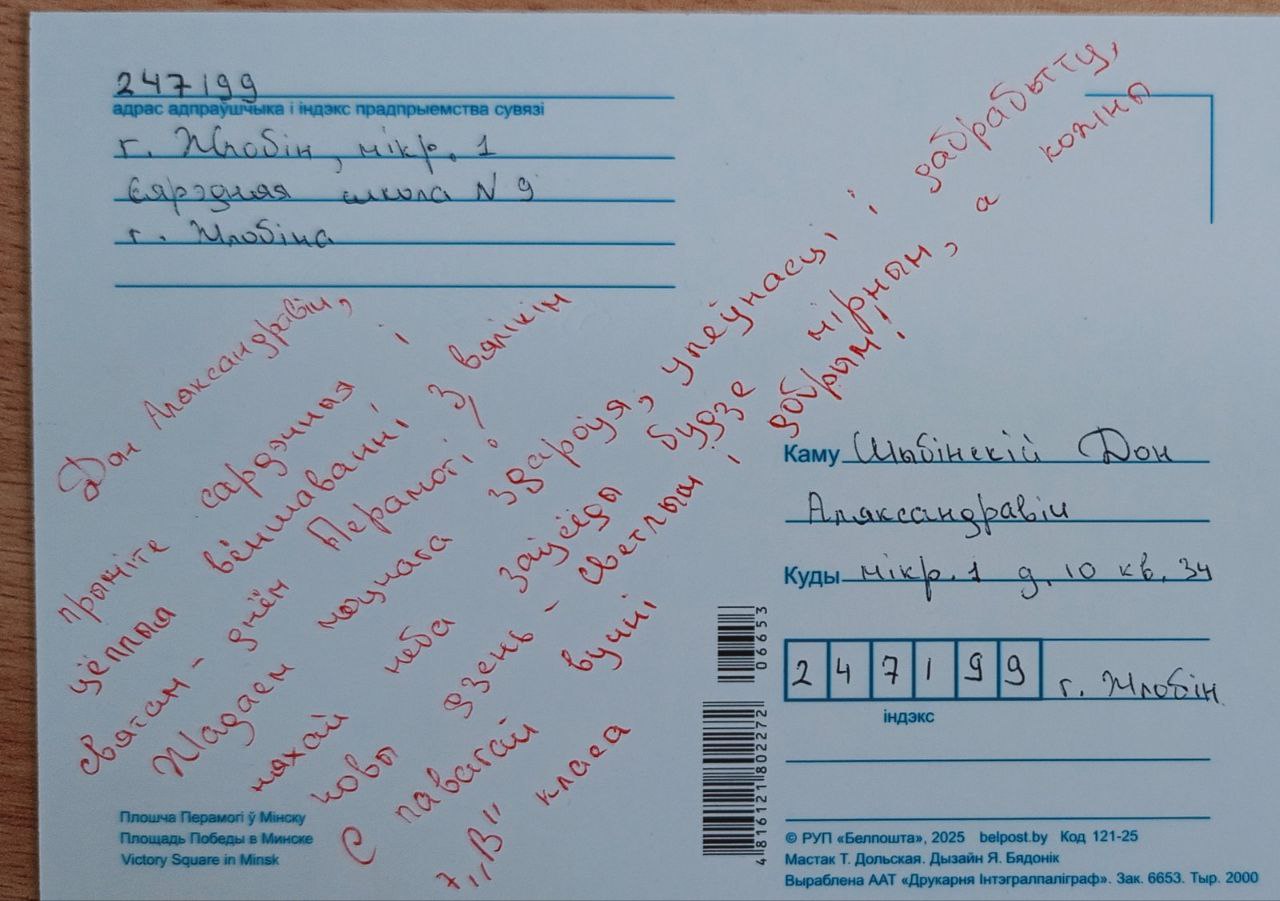 247199
адрас адпраўшчыка і індэкс прадпрыемства сувязі
г. Жлобін, мікр. 1
Сярэдняя школа N 9
г. Жлобіна
Дон Аляксандравіч,
прыміте сардэчныя і
цёплыя вёншаванні з вялікім
святам - днём Перамогі!
Жадаем моцнага здароўя, упеўнасці і дабрабытту,
няхай неба заўсёды будзе мірным, а кожны
новы дзень - светлым і добрым!
С павагай вучні
7 „В" класа
Каму Шыбінскій Дон
Аляксандравіч
Куды мікр. 1 д. 10 кв. 34
247199 г. Жлобін
індэкс
06653
4816121802272
Плошча Перамогі ў Мінску
Площадь Победы в Минске
Victory Square in Minsk
© РУП «Белпошта», 2025 belpost.by Код 121-25
Мастак Т. Дольская. Дызайн Я. Бядонік
Выраблена ААТ «Друкарня Інтэгралпаліграф». Зак. 6653. Тыр. 2000